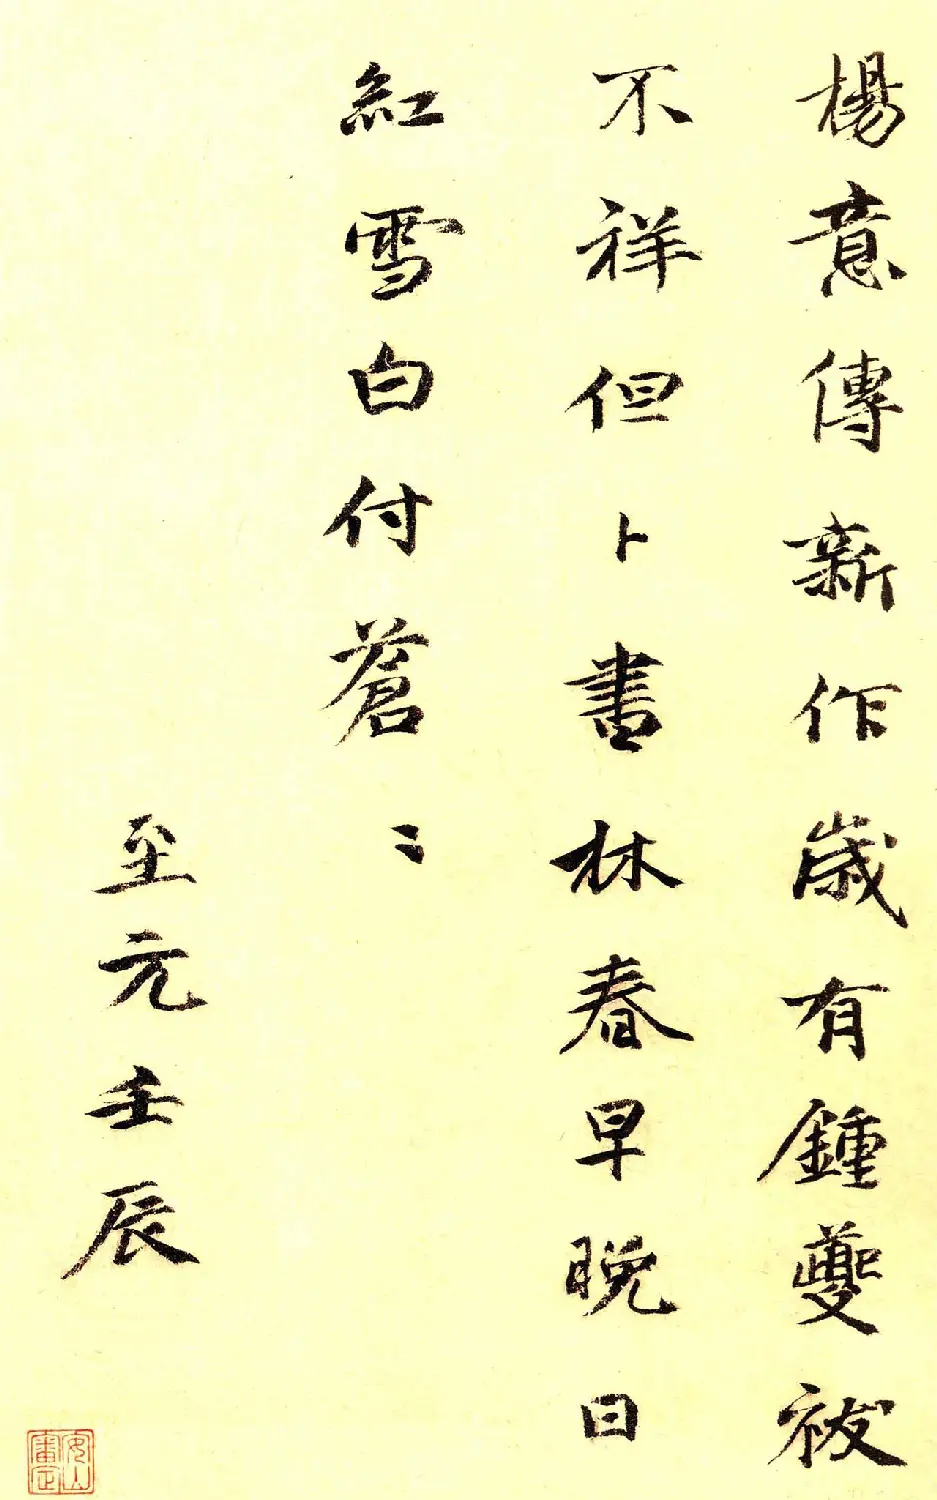 楊意傳新作歲有鍾夔祓
不祥但卜書林春早晚日
紅雪白付蒼〻
至元壬辰